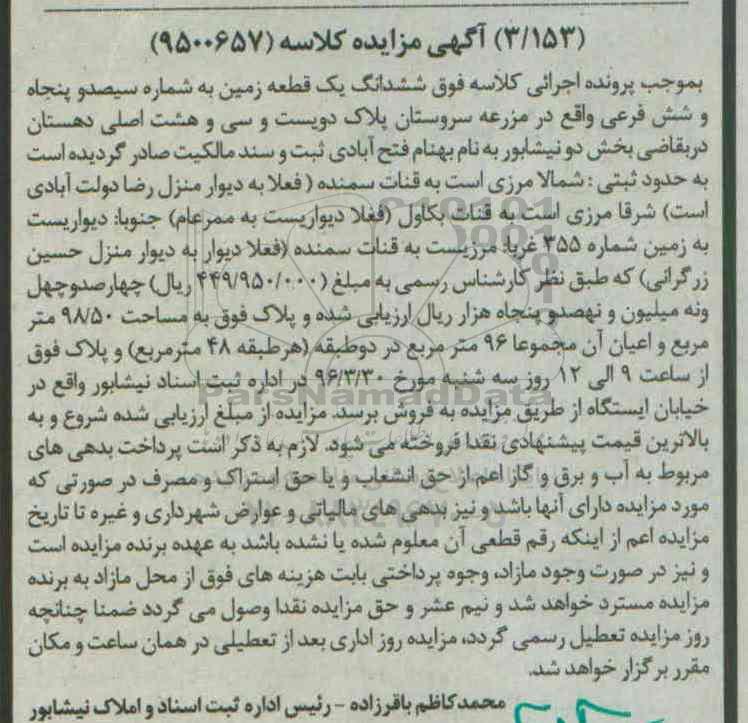 (۳/۱۵۳) آگهی مزایده کلاسه (۹۵۰۰۶۵۷)
بموجب پرونده اجرائی کلاسه فوق ششدانگ یک قطعه زمین به شماره سیصدو پنجاه
و شش فرعی واقع در مزرعه سروستان پلاک دویست و سی و هشت اصلی دهستان
دربقاضی بخش دو نیشابور به نام بهنام فتح آبادی ثبت و سند مالکیت صادر گردیده است
به حدود ثبتی : شمالا مرزی است به قنات سمنده ( فعلا به دیوار منزل رضا دولت آبادی
است) شرقا مرزی است به قنات بکاول (فعلا دیواریست به ممرعام) جنوبا: دیواریست
به زمین شماره ۳۵۵ غربا: مرزیست به قنات سمنده (فعلا دیوار به دیوار منزل حسین
زرگرانی) که طبق نظر کارشناس رسمی به مبلغ (۴۴۹/۹۵۰/۰۰۰ ریال) چهارصدوچهل
ونه میلیون و نهصدو پنجاه هزار ریال ارزیابی شده و پلاک فوق به مساحت ۹۸/۵۰ متر
مربع و اعیان آن مجموعا ۹۶ متر مربع در دوطبقه (هرطبقه ۴۸ مترمربع) و پلاک فوق
از ساعت ۹ الی ۱۲ روز سه شنبه مورخ ۹۶/۳/۳۰ در اداره ثبت اسناد نیشابور واقع در
خیابان ایستگاه از طریق مزایده به فروش برسد. مزایده از مبلغ ارزیابی شده شروع و به
بالاترین قیمت پیشنهادی نقدا فروخته می شود. لازم به ذکر است پرداخت بدهی های
مربوط به آب و برق و گاز اعم از حق انشعاب و یا حق استراک و مصرف در صورتی که
مورد مزایده دارای آنها باشد و نیز بدهی های مالیاتی و عوارض شهرداری و غیره تا تاریخ
مزایده اعم از اینکه رقم قطعی آن معلوم شده یا نشده باشد به عهده برنده مزایده است
و نیز در صورت وجود مازاد، وجوه پرداختی بابت هزینه های فوق از محل مازاد به برنده
مزایده مسترد خواهد شد و نیم عشر و حق مزایده نقدا وصول می گردد ضمنا چنانچه
روز مزایده تعطیل رسمی گردد، مزایده روز اداری بعد از تعطیلی در همان ساعت و مکان
مقرر برگزار خواهد شد.
محمدکاظم باقرزاده - رئیس اداره ثبت اسناد و املاک نیشابور
ParsNamadData